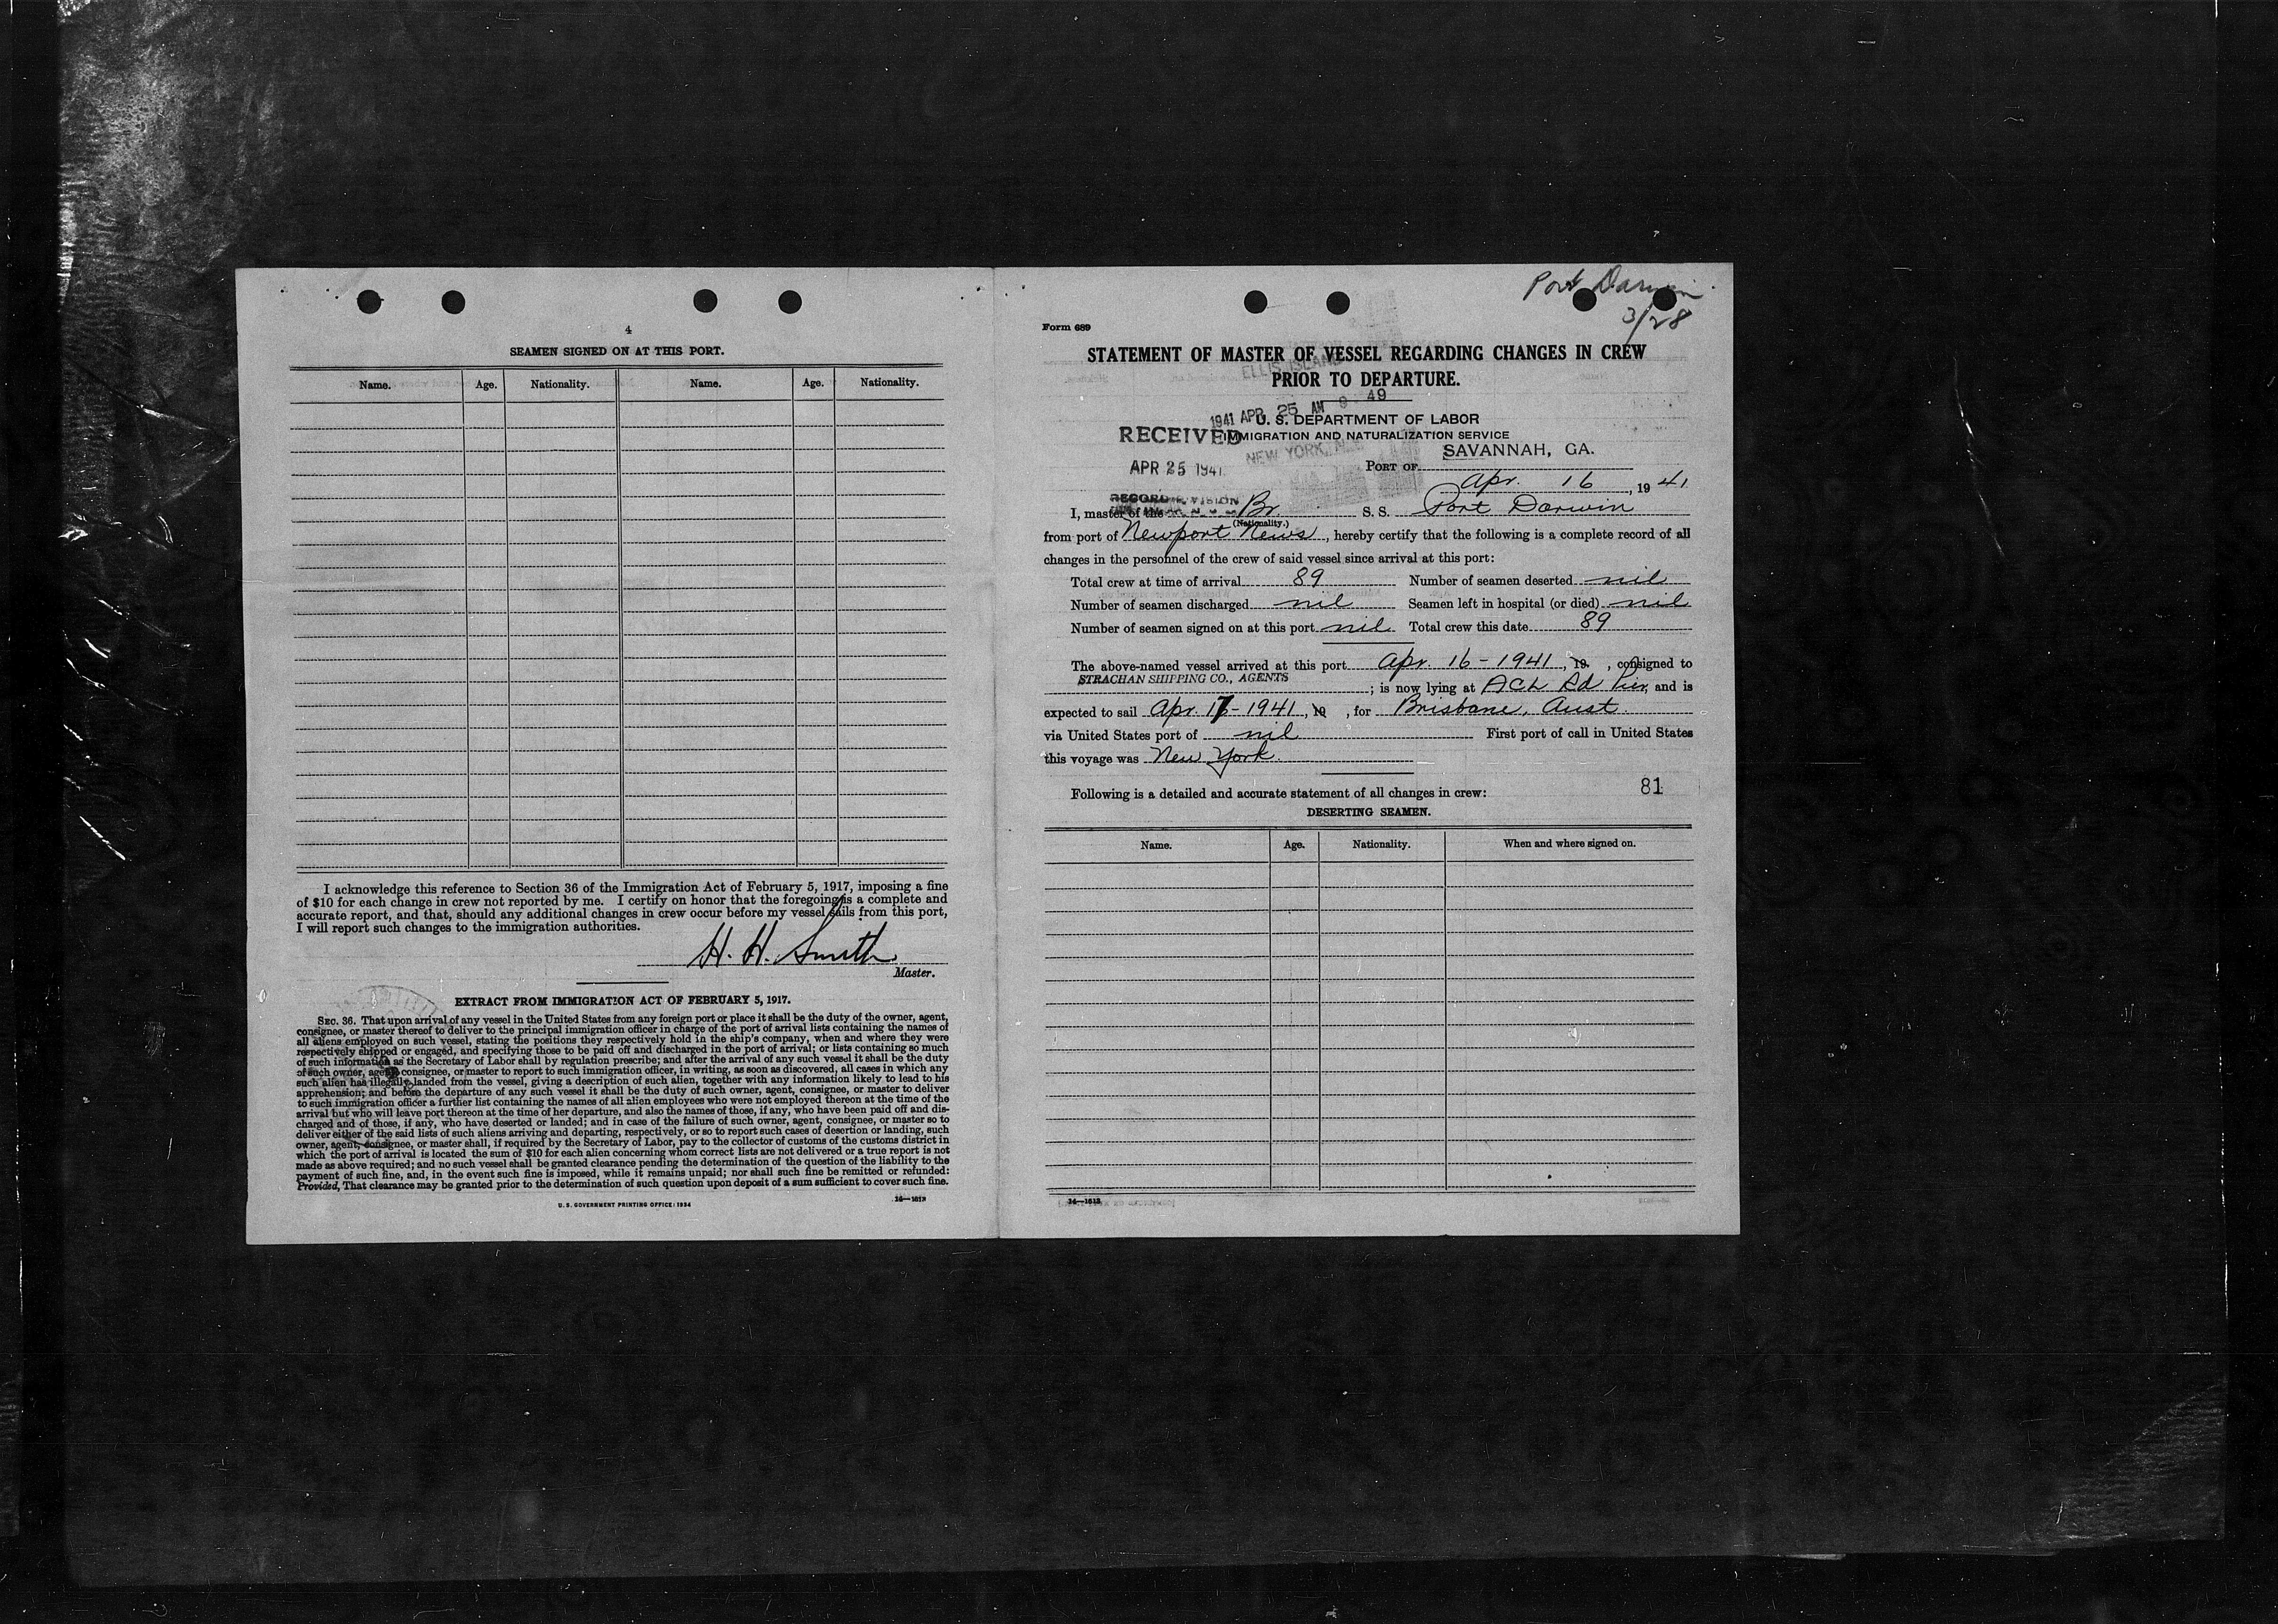 4
SEAMEN SIGNED ON AT THIS PORT.
Name. Age. Nationality. Name. Age. Nationality.
I acknowledge this reference to Section 36 of the Immigration Act of February 5, 1917, imposing a fine
of $10 for each change in crew not reported by me. I certify on honor that the foregoing is a complete and
accurate report, and that, should any additional changes in crew occur before my vessel sails from this port,
I will report such changes to the immigration authorities.
H. H. Smith
Master.
EXTRACT FROM IMMIGRATION ACT OF FEBRUARY 5, 1917.
SEC. 36. That upon arrival of any vessel in the United States from any foreign port or place it shall be the duty of the owner, agent,
consignee, or master thereof to deliver to the principal immigration officer in charge of the port of arrival lists containing the names of
all aliens employed on such vessel, stating the positions they respectively hold in the ship's company, when and where they were
respectively shipped or engaged, and specifying those to be paid off and discharged in the port of arrival; or lists containing so much
of such information as the Secretary of Labor shall by regulation prescribe; and after the arrival of any such vessel it shall be the duty
of such owner, agent, consignee, or master to report to such immigration officer, in writing, as soon as discovered, all cases in which any
such alien has illegally landed from the vessel, giving a description of such alien, together with any information likely to lead to his
apprehension; and before the departure of any such vessel it shall be the duty of such owner, agent, consignee, or master to deliver
to such immigration officer a further list containing the names of all alien employees who were not employed thereon at the time of the
arrival but who will leave port thereon at the time of her departure, and also the names of those, if any, who have been paid off and dis-
charged and of those, if any, who have deserted or landed; and in case of the failure of such owner, agent, consignee, or master so to
deliver either of the said lists of such aliens arriving and departing, respectively, or so to report such cases of desertion or landing, such
owner, agent, consignee, or master shall, if required by the Secretary of Labor, pay to the collector of customs of the customs district in
which the port of arrival is located the sum of $10 for each alien concerning whom correct lists are not delivered or a true report is not
made as above required; and no such vessel shall be granted clearance pending the determination of the question of the liability to the
payment of such fine, and, in the event such fine is imposed, while it remains unpaid; nor shall such fine be remitted or refunded:
Provided, That clearance may be granted prior to the determination of such question upon deposit of a sum sufficient to cover such fine.
U. S. GOVERNMENT PRINTING OFFICE: 1934
Port Darwin
3/28
Form 689
STATEMENT OF MASTER OF VESSEL REGARDING CHANGES IN CREW
ELLIS ISLAND
PRIOR TO DEPARTURE.
1941 APR 25 AM 9 49
U. S. DEPARTMENT OF LABOR
RECEIVED IMMIGRATION AND NATURALIZATION SERVICE
NEW YORK,
APR 25 1941
PORT OF SAVANNAH, GA.
Apr. 16, 1941
RECORD DIVISION
I, master of the Br. S. S. Port Darwin
(Nationality.)
from port of Newport News, hereby certify that the following is a complete record of all
changes in the personnel of the crew of said vessel since arrival at this port:
Total crew at time of arrival 89 Number of seamen deserted nil
Number of seamen discharged nil Seamen left in hospital (or died) nil
Number of seamen signed on at this port nil Total crew this date 89
The above-named vessel arrived at this port Apr. 16-1941, 19 , consigned to
STRACHAN SHIPPING CO., AGENTS ; is now lying at ACL Rd Pier, and is
expected to sail Apr. 17-1941, 19 , for Brisbane, Aust.
via United States port of nil First port of call in United States
this voyage was New York.
Following is a detailed and accurate statement of all changes in crew: 81
DESERTING SEAMEN.
Name. Age. Nationality. When and where signed on.